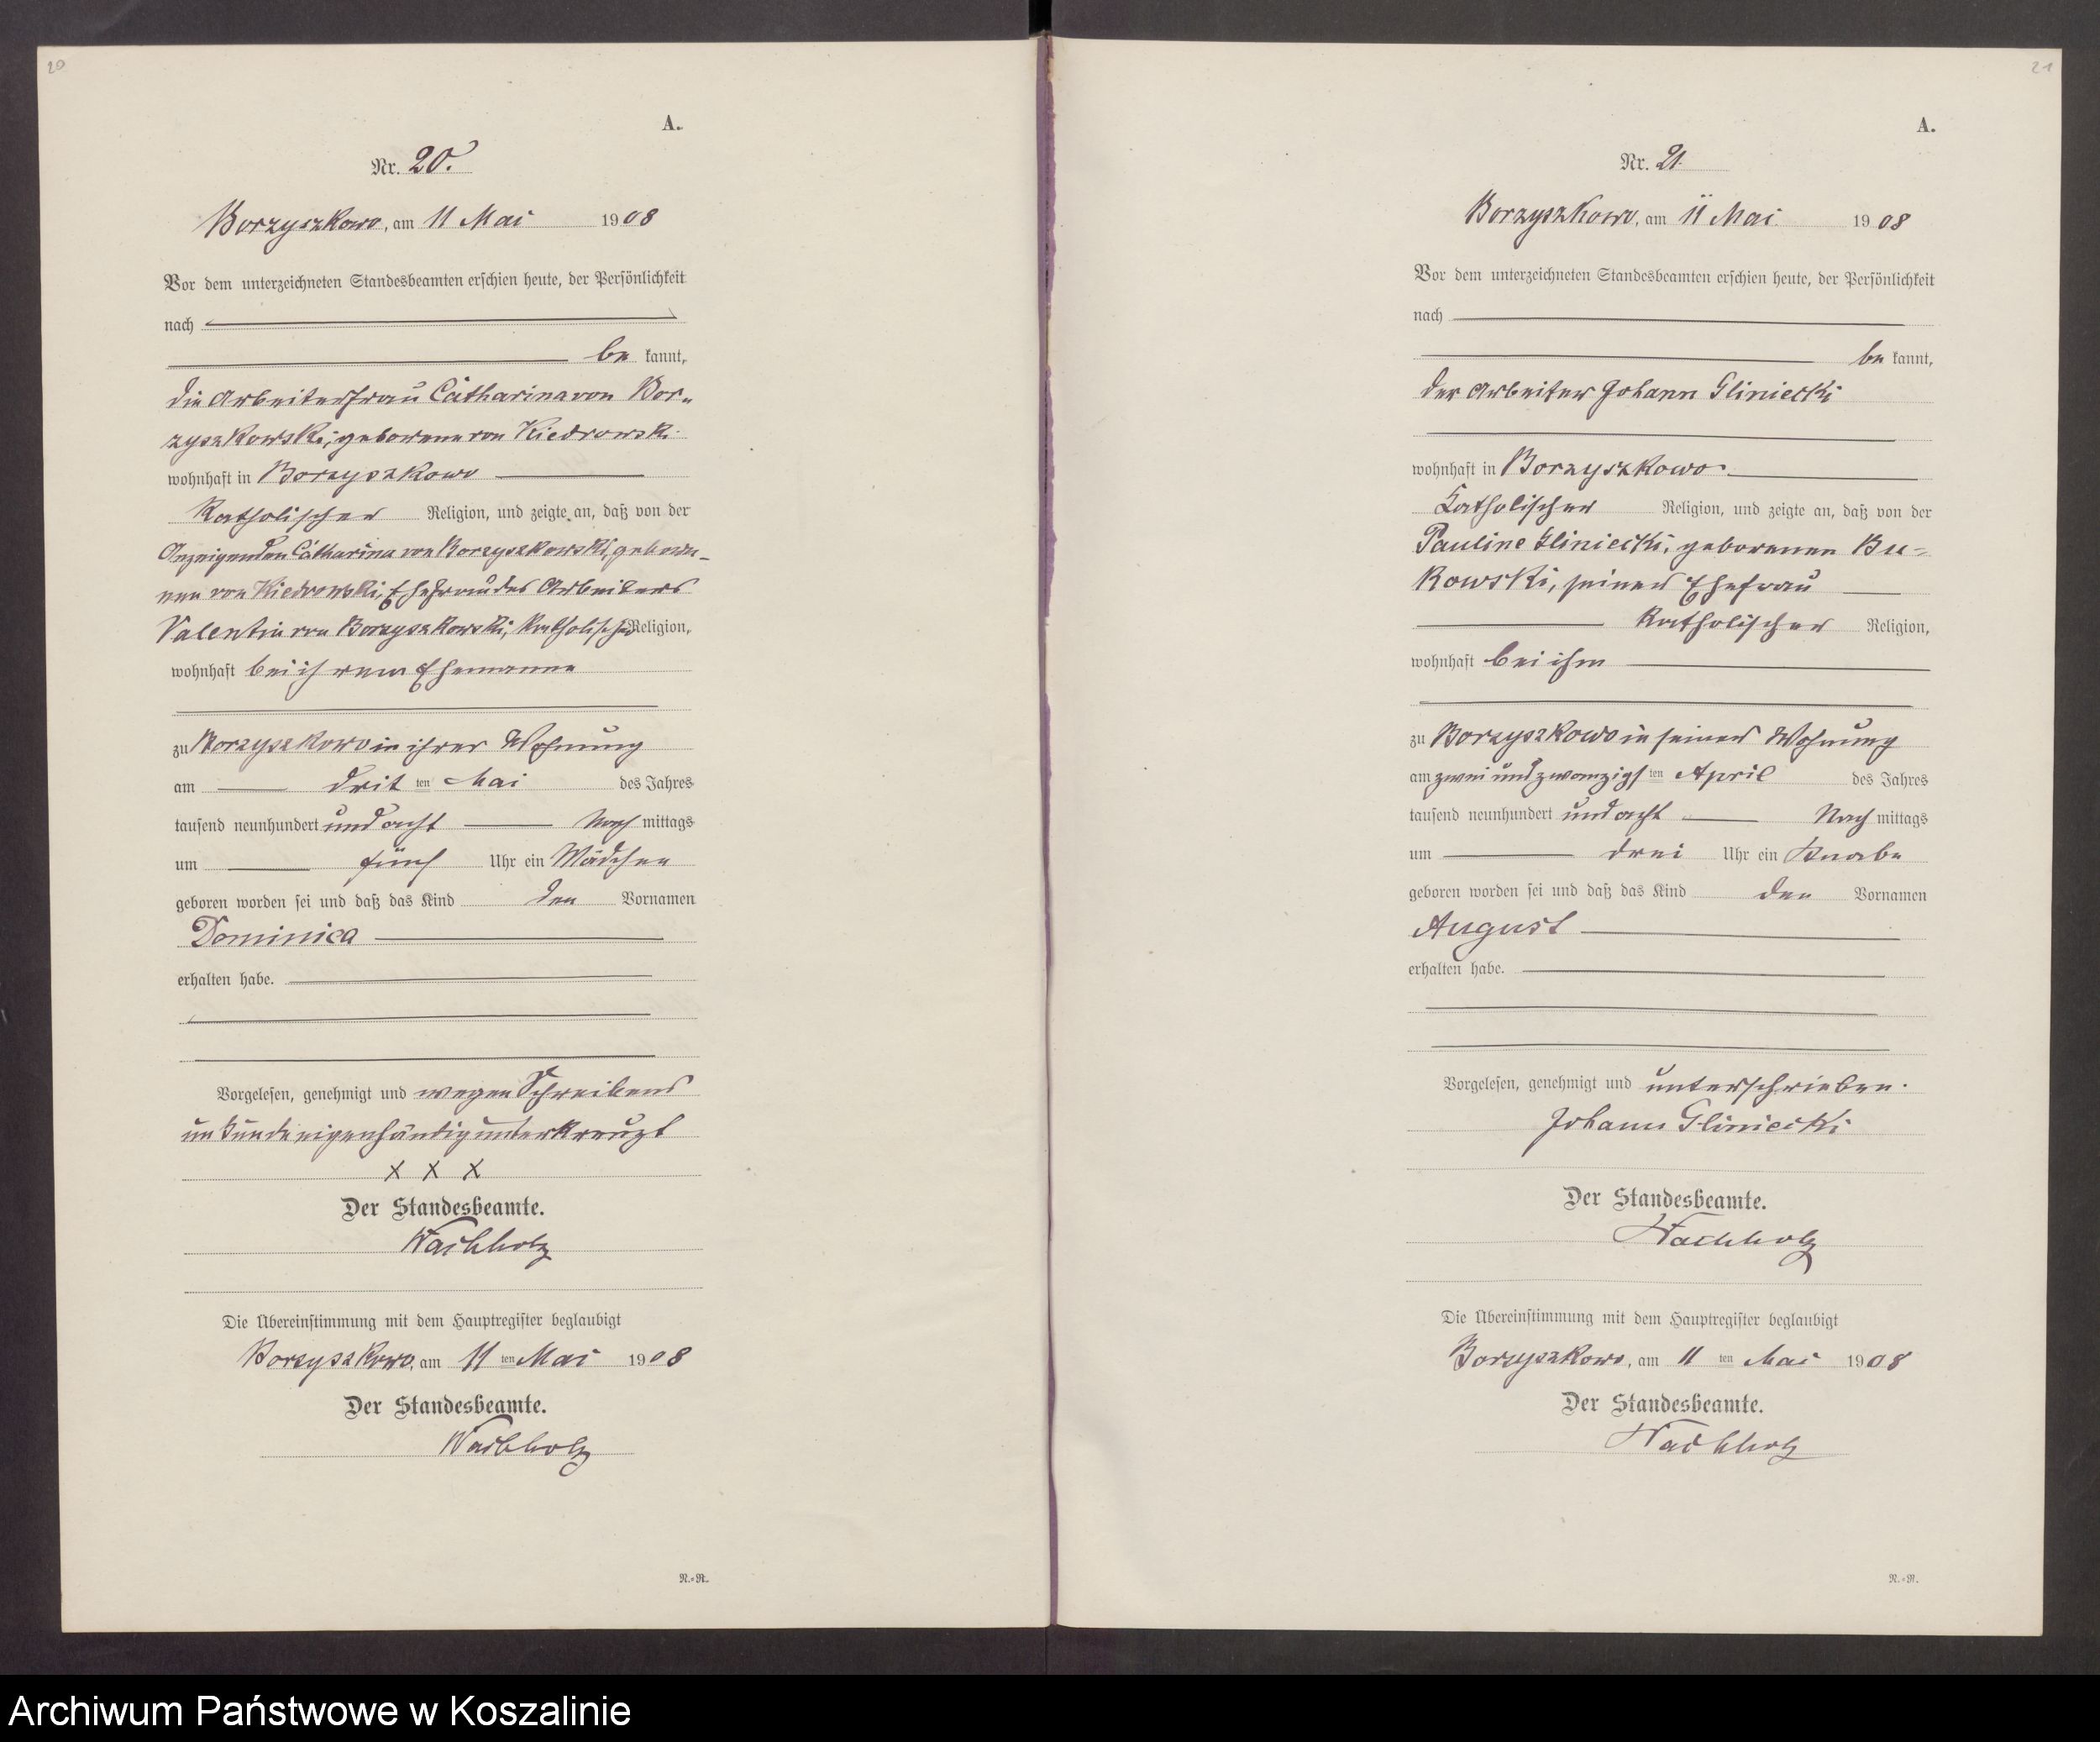 20
A.
Nr. 20.
Borzyszkowo, am 11 Mai 1908
Vor dem unterzeichneten Standesbeamten erschien heute, der Persönlichkeit
nach
be kannt,
die Arbeiterfrau Catharina von Bor-
zyszkowski, geborene von Kiedrowski
wohnhaft in Borzyszkowo
katholischer Religion, und zeigte an, daß von der
Anzeigenden Catharina von Borzyszkowski, gebore-
nen von Kiedrowski, Ehefrau des Arbeiters
Valentin von Borzyszkowski, katholischer Religion,
wohnhaft bei ihrem Ehemanne
zu Borzyszkowo in ihrer Wohnung
am drit ten Mai des Jahres
tausend neunhundert und acht Nach mittags
um fünf Uhr ein Mädchen
geboren worden sei und daß das Kind den Vornamen
Dominica
erhalten habe.
Vorgelesen, genehmigt und wegen Schreibens
unkunde eigenhändig unterkreuzt
X X X
Der Standesbeamte.
Wachholz
Die Übereinstimmung mit dem Hauptregister beglaubigt
Borzyszkowo, am 11 ten Mai 1908
Der Standesbeamte.
Wachholz
N.=R.
21
A.
Nr. 21.
Borzyszkowo, am 11 Mai 1908
Vor dem unterzeichneten Standesbeamten erschien heute, der Persönlichkeit
nach
be kannt,
der Arbeiter Johann Gliniecki
wohnhaft in Borzyszkowo
katholischer Religion, und zeigte an, daß von der
Pauline Gliniecki, geborenen Bu-
kowski, seiner Ehefrau
katholischer Religion,
wohnhaft bei ihm
zu Borzyszkowo in seiner Wohnung
am zwei und zwanzigs ten April des Jahres
tausend neunhundert und acht Nach mittags
um drei Uhr ein Knabe
geboren worden sei und daß das Kind den Vornamen
August
erhalten habe.
Vorgelesen, genehmigt und unterschrieben.
Johann Gliniecki
Der Standesbeamte.
Wachholz
Die Übereinstimmung mit dem Hauptregister beglaubigt
Borzyszkowo, am 11 ten Mai 1908
Der Standesbeamte.
Wachholz
N.=R.
Archiwum Państwowe w Koszalinie